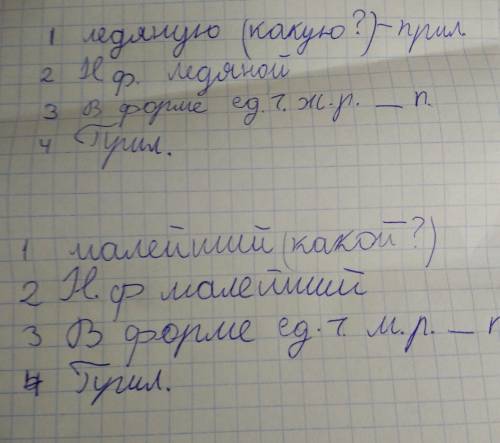 1 ледяную (какую?) – прил.
2 Н.ф. ледяной
3 В форме ед.ч. ж.р. _ п.
4 Прил.
1 малейший (какой?)
2 Н.ф малейший
3 В форме ед.ч. м.р. _ п
4 Прил.